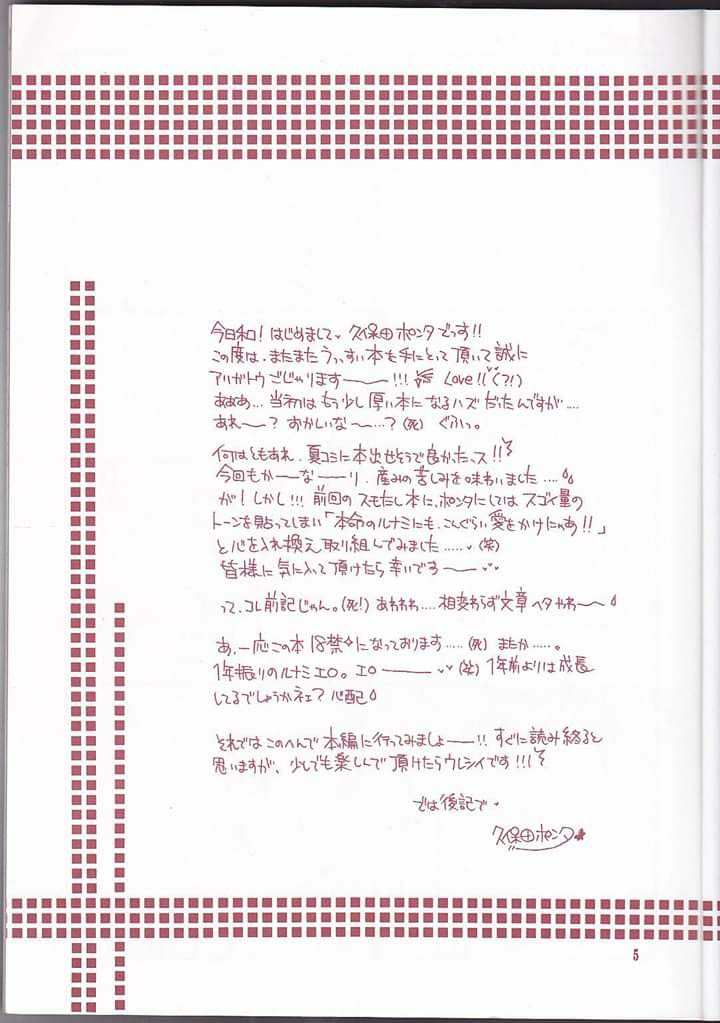 今日和!はじめまして♥久保田ポンタでっす!!
この度は、またまたうっすい本を手にとって頂いて誠に
アリガトウごじゃりますー〜ー!!! Love!!(?!)
あああ…当初はもう少し厚い本になるハズだったんですが….
あれー〜?おかしいな〜…?(死)ぐふっ。
何はともあれ、夏コミに本出せそうで良かったっス!!
今回もかーなーり、産みの苦しみを味わいました….
が!しかし!!!前回のスモもたし本に、ポンタにしてはスゴイ量の
トーンを貼ってしまい「本命のルナミにも、こんぐらい愛をかけにゃあ!!」
と心を入れ換え取り組んでみました…..♥(笑)
皆様に気に入って頂けたら幸いですー〜ー♥♥
って、コレ前記じゃん。(死!)あわわわ….相変わらず文章ヘタやわ〜〜
あ、一応この本18禁になっております…..(死)またか…..。
1年振りのルナミエロ。エロー〜ー♥♥(笑)1年前よりは成長
してるでしょうかネェ?心配
それではこのへんで本編に行ってみましょー〜ー!!すぐに読み終ると
思いますが、少しでも楽しんで頂けたらウレシイです!!!
では後記で♥
久保田ポンタ
5